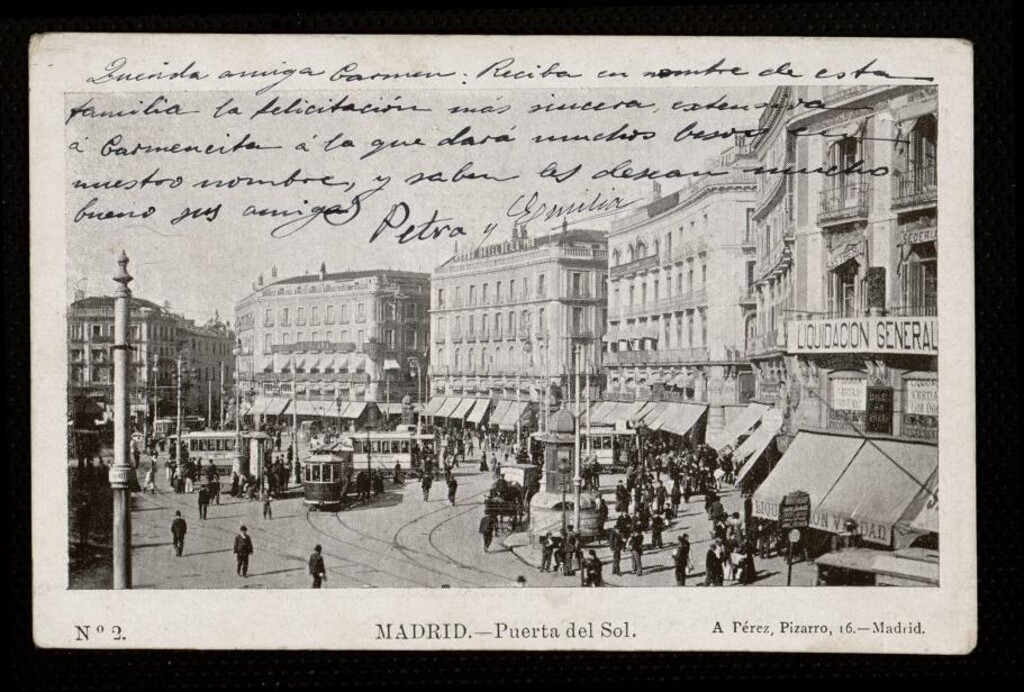 Querida amiga Carmen: Reciba en nombre de esta
familia la felicitación más sincera, extensiva
á Carmencita á la que dará muchos besos en
nuestro nombre, y saben les desean mucho
bueno sus amigas Petra y Emilia
SEDERIA
LIQUIDACION GENERAL
LIQUIDACION VERDAD
Nº 2.
MADRID.—Puerta del Sol.
A Pérez, Pizarro, 16.—Madrid.